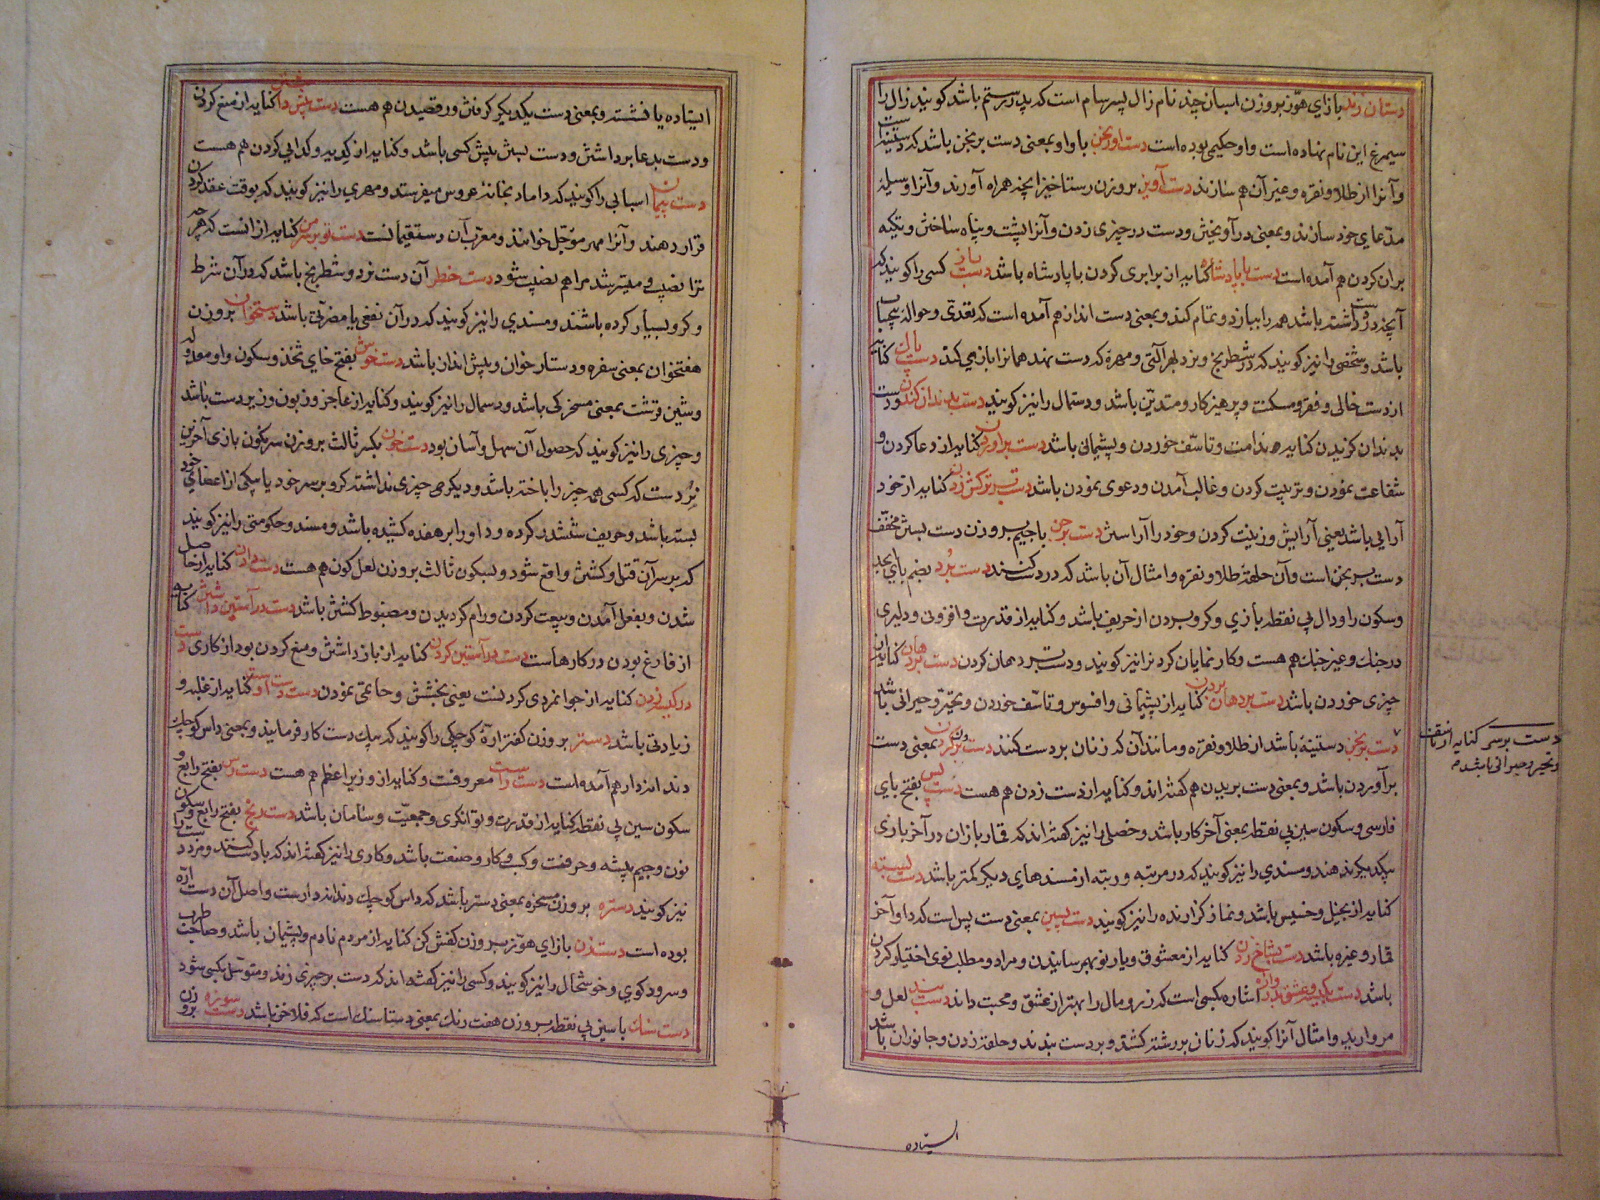 دستان زند بازای هوز بروزن اسبان چند نام زال پسر سام است که پدر رستم باشد کویند زال را
سیمرغ این نام نهاده است و او حکیمی بوده است دست اورنجن با واو بمعنی دست برنجن باشد که دستینه است
و آنرا از طلا و نقره و غیر آن هم سازند دست آویز بر وزن رستاخیز انچه همراه آورند و آنرا وسیلهٔ
مدعای خود سازند و بمعنی در آویختن و دست در چیزی زدن و آنرا پشت و پناه ساختن و تکیه
بران کردن هم آمده است دست با پادشاه کنایه از برابری کردن با پادشاه باشد دست باز کسی را کویند که
آنچه در دست داشته باشد همه را ببازد و تمام کند و بمعنی دست انداز هم آمده است که تعدی و حواله
باشد و شخصی را نیز کویند که در شطرنج و نرد بهر آلتی و مهرهٔ که دست نهد همانرا بازی کند دست پاک کنایه
از دست خالی و فقر و مسکنت و پرهیزکار و متدین باشد و دستمال را نیز کویند دست بدندان کندن و دست
بدندان کزیدن کنایه از ندامت و تاسف خوردن و پشیمانی باشد دست برآوردن کنایه از دعا کردن و
شفاعت نمودن و تربیت کردن و غالب آمدن و دعوی نمودن باشد دست بر ترکش زدن کنایه از خود
آرایی باشد یعنی آرایش و زینت کردن و خود را آراستن دست برجن با جیم بر وزن دست بستن مخفف
دست برنجن است و آن حلقهٔ طلا و نقره و امثال آن باشد که در دست کنند دست برد بضم بای ابجد
و سکون را و دال بی نقطه بازی و کرو بردن از حریف باشد و کنایه از قدرت و افزونی و دلیری
در جنك و غیر جنك هم هست و کار نمایان کردنرا نیز کویند و دست بر دهان کردن دست بر دهان کنایه از
چیزی خوردن باشد دست بر دهان بردن کنایه از پشیمانی و افسوس و تاسف خوردن و تحیر و حیرانی باشد
دست برنجن دستینهٔ باشد از طلا و نقره و مانند آن که زنان بر دست کنند دست برون کردن بمعنی دست
برآوردن باشد و بمعنی دست بریدن هم کفته‌اند و کنایه از دست زدن هم هست دست پس بفتح بای
فارسی و سکون سین بی نقطه بمعنی آخر کار باشد و خصل را نیز کفته‌اند که قماربازان در آخر بازی
بیکدیکر بدهند و مسندی را نیز کویند که در مرتبه و رتبه از مسندهای دیکر کمتر باشد دست بسته
کنایه از بخیل و خسیس باشد و نماز کزارنده را نیز کویند دست پسین بمعنی دست پس است که داو آخر
قمار و غیره باشد دست بشاخی زدن کنایه از معشوق و یار نو بهم رسانیدن و مراد و مطلب نوی اختیار کردن
باشد دست بکیسه و عشق بدروازه اشاره بکسی است که زر و مال را بهتر از عشق و محبت داند دست بند لعل و
مروارید و امثال آنرا کویند که زنان بر رشته کشند و بر دست بندند و حلقه زدن و جانوران باشد
دست بر سر کنایه از تاسف
و تحیر و حیرانی باشد
ایستاده
ایستاده یا نشسته و بمعنی دست یکدیکر کرفتن و رقصیدن هم هست دست پیش داشتن کنایه از منع کردن
و دست بدعا برداشتن و دست بستن پیش کسی باشد و کنایه از کدیه و کدایی کردن هم هست
دست پیمان اسبابی را کویند که داماد بخانهٔ عروس میفرستد و مهری را نیز کویند که بوقت عقد کردن
قرار دهند و آنرا مهر مؤجل خوانند و معرب آن دستفیمانست دست تو بر سر من کنایه از انست که هر چه
ترا نصیب و میسر شد مرا هم نصیب شود دست خطر آن دست نرد و شطرنج باشد که در آن شرط
و کرو بسیار کرده باشند و مسندی را نیز کویند که در آن نفعی یا مضرتی باشد دستخوان بر وزن
هفتخوان بمعنی سفره و دستار خوان و پیش انداز باشد دست خوش بفتح خای ثخذ و سکون واو معدوله
و شین قرشت بمعنی مسخرکی باشد و دسمال را نیز کویند و کنایه از عاجز و زبون و زیر دست باشد
و چیزی را نیز کویند که حصول آن سهل و آسان بود دست خون بکسر ثالث بر وزن سرنکون بازی آخرین
نرد است که کسی همه چیز را باخته باشد و دیکر هیچ چیزی نداشته کرو بر سر خود یا بیکی از اعضای خود
بسته باشد و حریف ششدر کرده و داو را بر هفده کشیده باشد و مسند و حکومتی را نیز کویند
که بر سر آن قتل و کشش واقع شود و بسکون ثالث بر وزن لعل کون هم هست دست دادن کنایه از حاصل
شدن و بفعل آمدن و بیعت کردن و رام کردیدن و مضبوط کشتن باشد دست در آستین داشتن کنایه
از فارغ بودن در کارهاست دست در آستین کردن کنایه از باز داشتن و منع کردن بود از کاری دست
در کیسه زدن کنایه از جوانمردی کردنست یعنی بخشش و حاتمی نمودن دست دست اوست کنایه از غلبه و
زیادتی باشد دستر بر وزن کفتر ارهٔ کوچکی را کویند که بیك دست کار فرمایند و بمعنی داس کوچك
دندانه‌دار هم آمده است دست راست معروفست و کنایه از وزیر اعظم هم هست دست رس بفتح رابع و
سکون سین بی نقطه کنایه از قدرت و توانکری و جمعیت و سامان باشد دست رنج بفتح رابع و سکون
نون و جیم پیشه و حرفت و کسب و کار و صنعت باشد و کاری را نیز کفته‌اند که با دست کنند و مزد دست را
نیز کویند دستره بر وزن مسخره بمعنی دستر باشد که داس کوچك دندانه دارست و اصل آن دست اره
بوده است دست زن بازای هوز بر وزن کفش کن کنایه از مردم نادم و پشیمان باشد و صاحب طرب
و سرود کوی و خوشحال را نیز کویند و کسی را نیز کفته‌اند که دست بر چیزی زند و متوسل بکسی شود
دست سنك با سین بی نقطه بر وزن هفت رنك بمعنی دستاسنك است که فلاخن باشد دست سوزه بر وزن